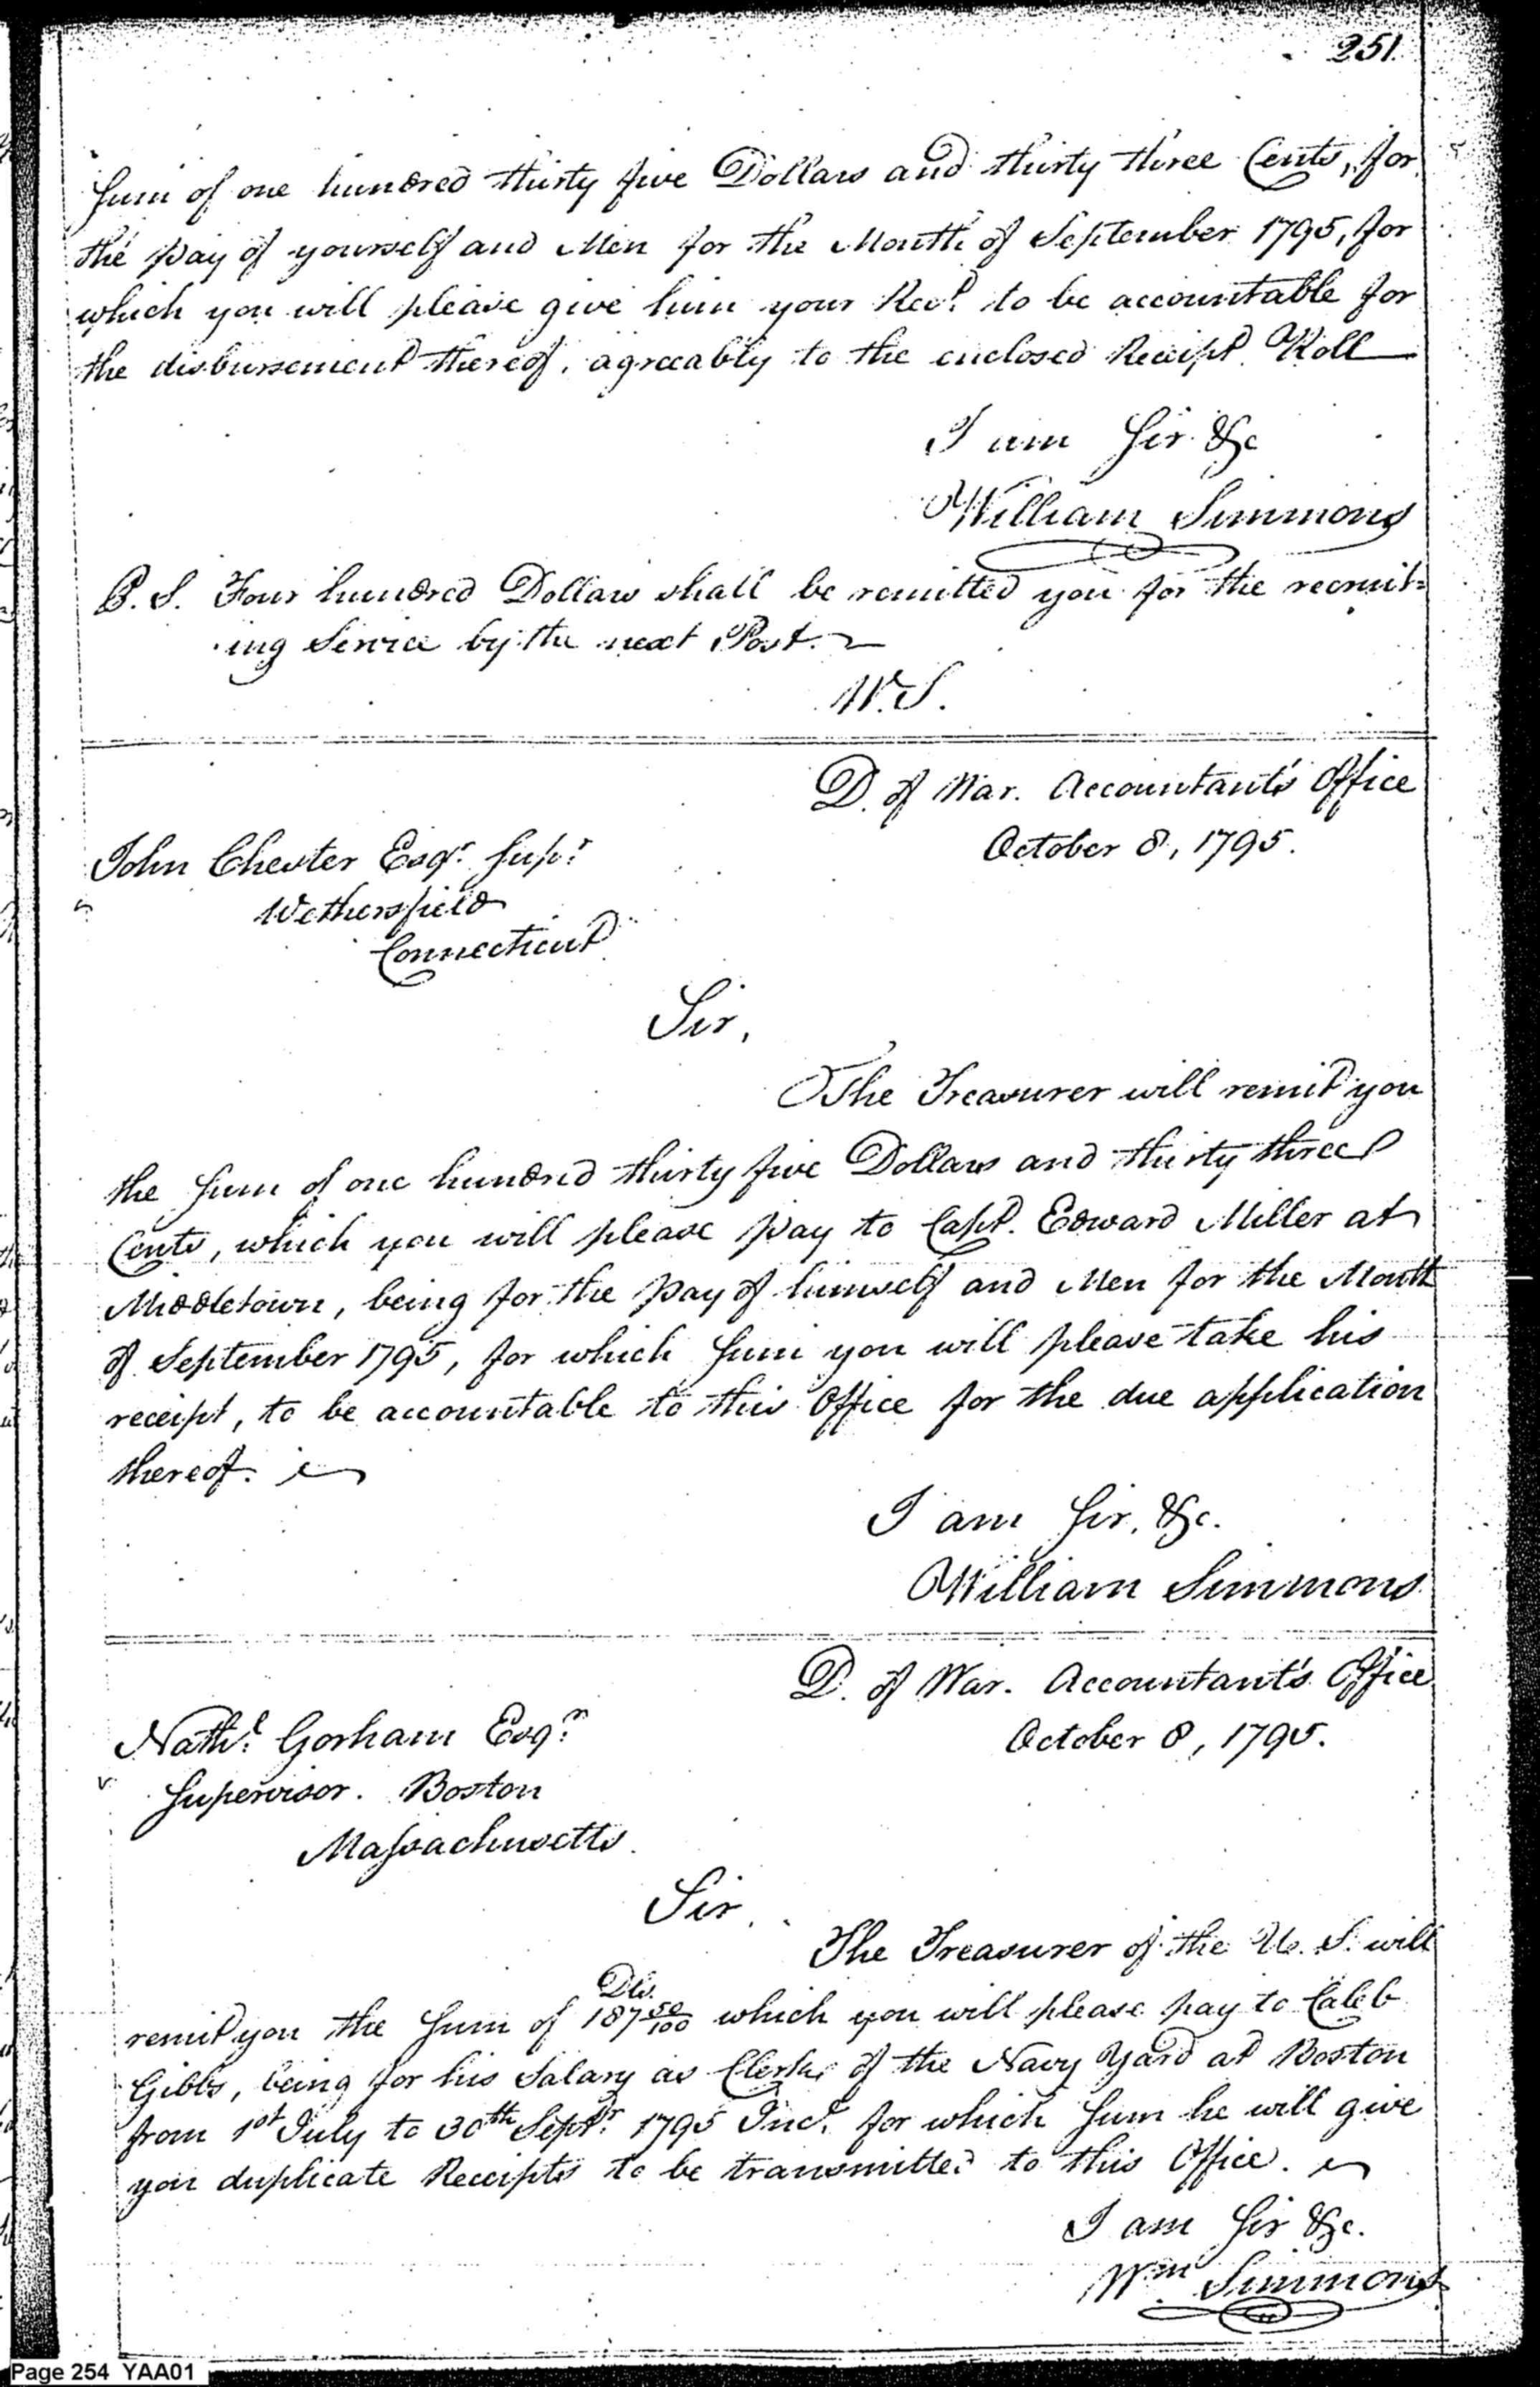 251.
Sum of one hundred thirty five Dollars and thirty three Cents, for
the pay of yourself and Men for the Month of September 1795, for
which you will please give him your Rect. to be accountable for
the disbursement thereof, agreeably to the enclosed Receipt Roll
I am Sir &c
William Simmons
P. S. Four hundred Dollars shall be remitted you for the recruit=
ing Service by the next Post.
W. S.
D. of War. Accountant's Office
October 8, 1795.
John Chester Esqr. Supr.
Wethersfield
Connecticut
Sir,
The Treasurer will remit you
the Sum of one hundred thirty five Dollars and thirty three
Cents, which you will please pay to Capt. Edward Miller at
Middletown, being for the pay of himself and Men for the Month
of September 1795, for which Sum you will please take his
receipt, to be accountable to this Office for the due application
thereof.
I am Sir, &c.
William Simmons
D. of War. Accountant's Office
October 8, 1795.
Nathl. Gorham Esqr.
Supervisor. Boston
Massachusetts.
Sir,
The Treasurer of the U. S. will
Dls.
remit you the Sum of 187 50/100 which you will please pay to Caleb
Gibbs, being for his Salary as Clerk of the Navy Yard at Boston
from 1st July to 30th Septr. 1795 Inc. for which Sum he will give
you duplicate Receipts to be transmitted to this Office.
I am Sir &c.
Wm Simmons
Page 254 YAA01